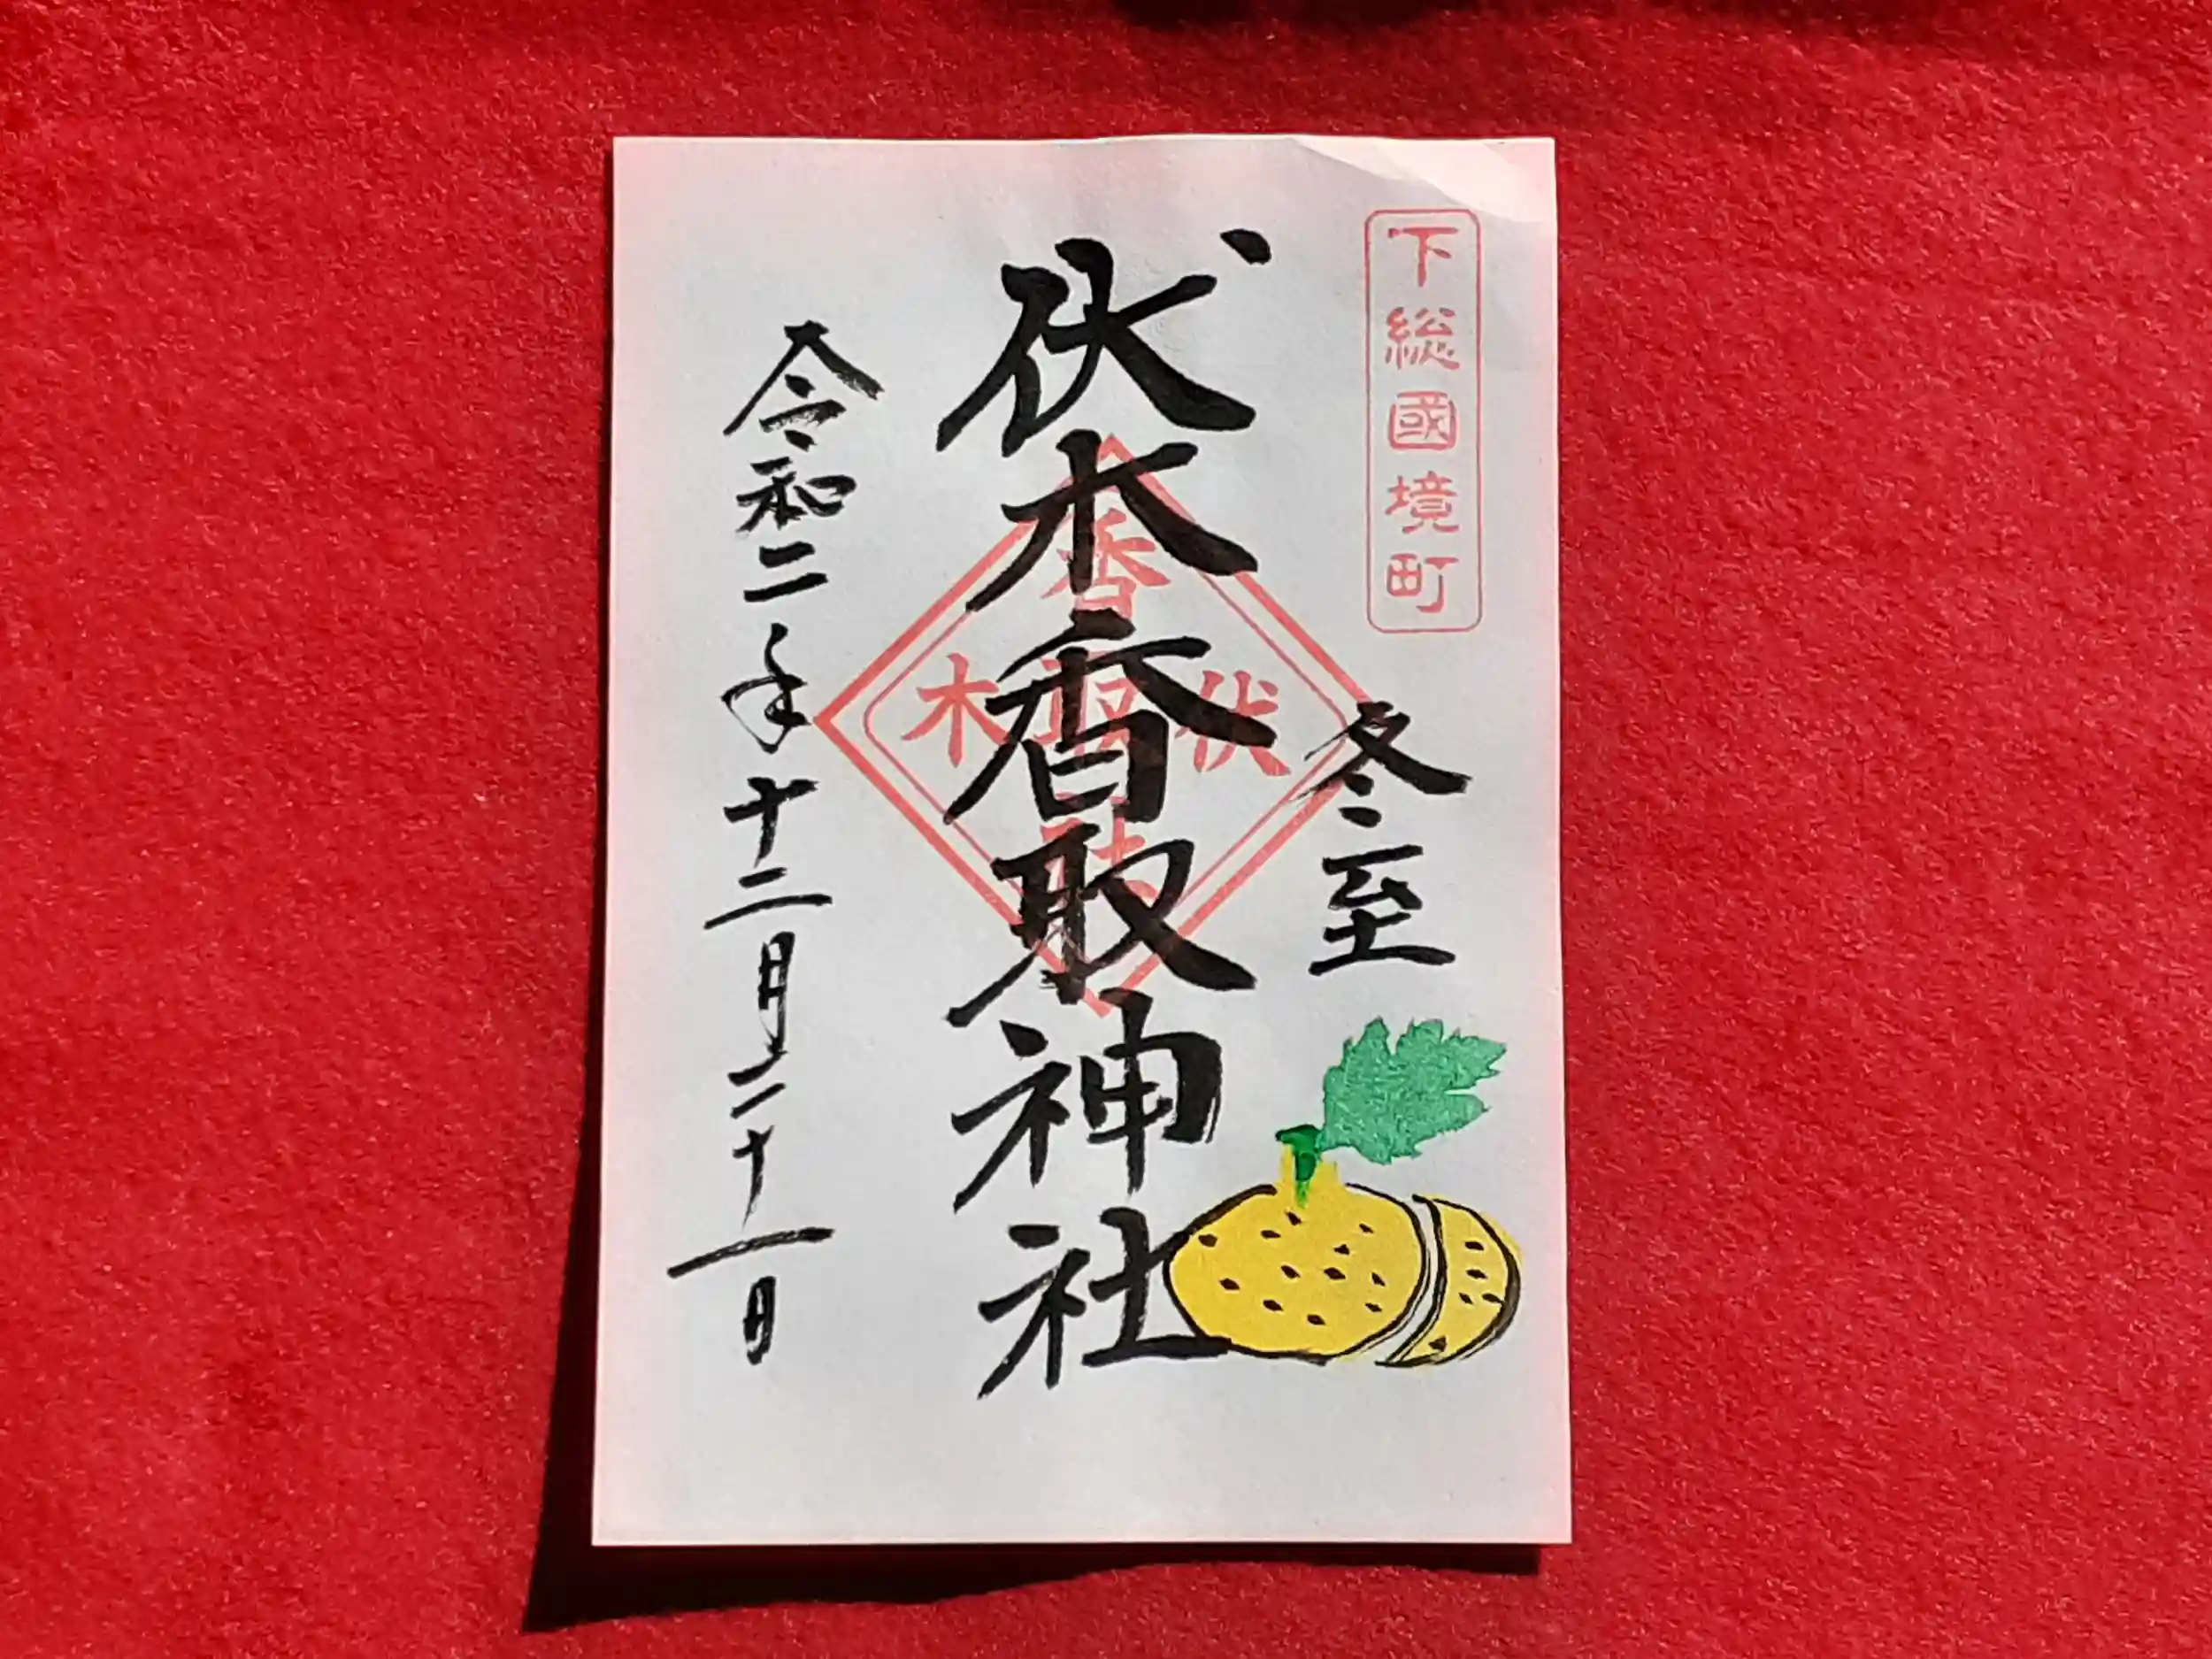 下総國境町
冬至
伏木香取神社
伏木
香取
令和二年十二月二十一日